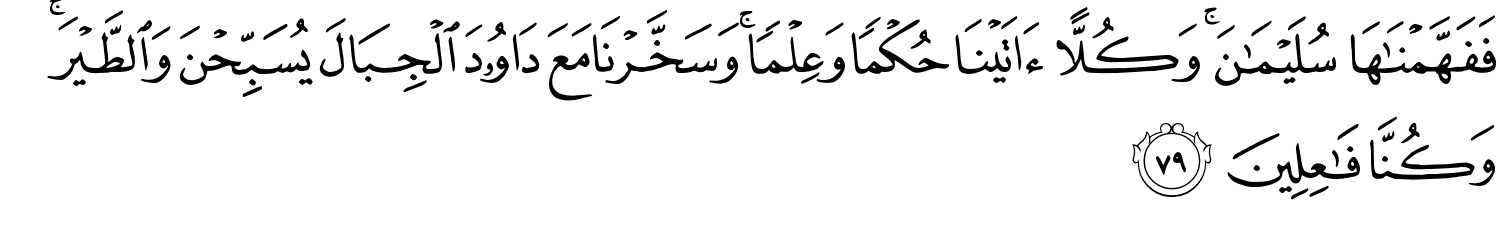 فَفَهَّمْنَٰهَا سُلَيْمَٰنَ ۚ وَكُلًّا ءَاتَيْنَا حُكْمًا وَعِلْمًا ۚ وَسَخَّرْنَا مَعَ دَاوُۥدَ ٱلْجِبَالَ يُسَبِّحْنَ وَٱلطَّيْرَ ۚ
وَكُنَّا فَٰعِلِينَ ٧٩